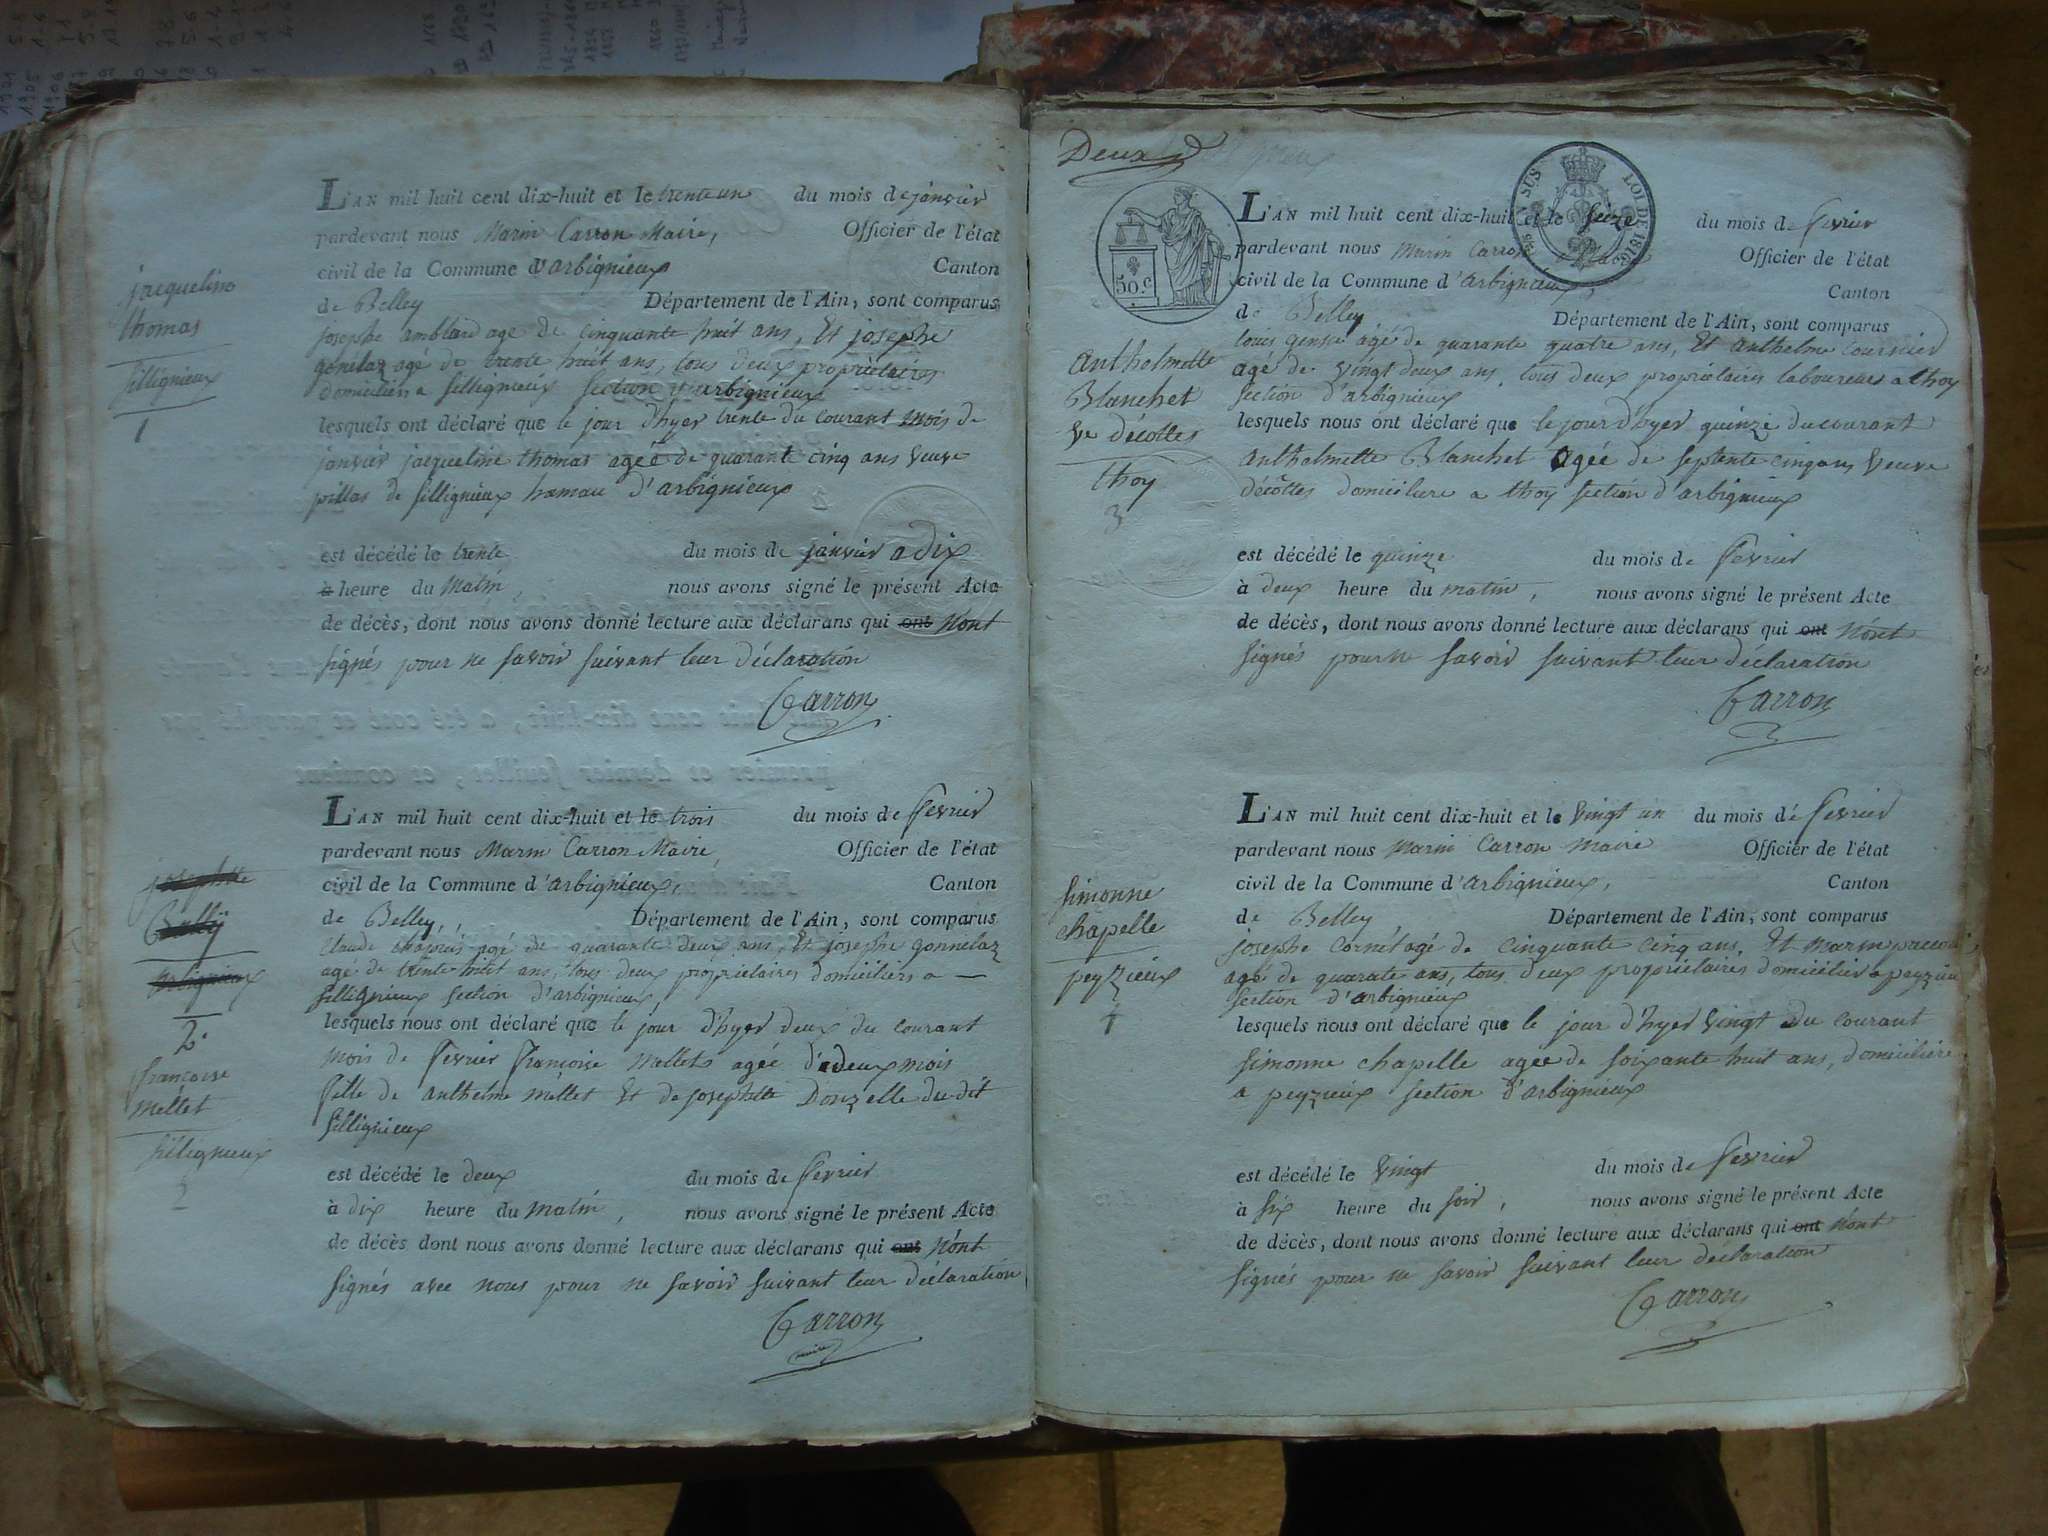 jacqueline
thomas
Sillignieux
1
L'AN mil huit cent dix-huit et le trente un du mois de janvier
pardevant nous Marin Carron Maire, Officier de l'état
civil de la Commune d'arbignieux Canton
de Belley Département de l'Ain, sont comparus
josephe amblard age de cinquante huit ans, Et josephe
gonelaz agé de trente huit ans, tous deux propriètaires
domiciliers a Sillignieux Section d'arbignieux
lesquels ont déclaré que le jour d'hyer trente du courant mois de
janvier jacqueline thomas agée de quarant cinq ans veuve
pillas de Sillignieux hamau d'arbignieux
est décédé le trente du mois de janvier a dix
à heure du Matin, nous avons signé le présent Acte
de décès, dont nous avons donné lecture aux déclarans qui ont N'ont
signés pour ne savoir suivant leur déclaration
Carron
josephte
arbignieux
2.
françoise
Mellet
Sillignieux
2
L'AN mil huit cent dix-huit et le trois du mois de fevrier
pardevant nous Marin Carron Maire, Officier de l'état
civil de la Commune d'arbignieux, Canton
de Belley, Département de l'Ain, sont comparus
Claude agé de quarante deux ans, Et josephe gonnelaz
agé de trente huit ans, tous deux proprietaires domiciliers a —
Sillignieux Section d'arbignieux
lesquels nous ont déclaré que le jour d'hyer deux du courant
mois de fevrier françoise Mellet agée deux mois
fille de anthelme Mellet Et de josephte Donzelle du dit
Sillignieux
est décédé le deux du mois de fevrier
à dix heure du Matin, nous avons signé le présent Acte
de décès dont nous avons donné lecture aux déclarans qui ont N'ont
signés avec nous pour ne savoir suivant leur déclaration
Carron
maire
Deux
SUS LOI DE 1816
50. c
anthelmette
Blanchet
ve décottes
thoy
3
L'AN mil huit cent dix-huit et le seize du mois de fevrier
pardevant nous Marin Carron Maire Officier de l'état
civil de la Commune d'arbignieux, Canton
de Belley Département de l'Ain, sont comparus
louis agé de quarante quatre ans, Et anthelme cournier
agé de vingt deux ans, tous deux propriètaires laboureurs a thoy
section d'arbignieux
lesquels nous ont déclaré que le jour d'hyer quinze du courant
anthelmette Blanchet agée de septente cinq ans veuve
décôttes domicilière a thoy section d'arbignieux
est décédé le quinze du mois de fevrier
à deux heure du matin, nous avons signé le présent Acte
de décès, dont nous avons donné lecture aux déclarans qui ont N'ont
signés pour ne savoir suivant leur déclaration
Carron
simonne
chapelle
peyzieux
4
L'AN mil huit cent dix-huit et le vingt un du mois de fevrier
pardevant nous Marin Carron Maire Officier de l'état
civil de la Commune d'arbignieux, Canton
de Belley Département de l'Ain, sont comparus
josephe cornet agé de cinquante cinq ans, Et Marin
agé de quarate ans, tous deux propriètaires domicilier a peyzieux
section d'arbignieux
lesquels nous ont déclaré que le jour d'hyer vingt du courant
simonne chapelle agée de soixante huit ans, domicilière
a peyzieux section d'arbignieux
est décédé le vingt du mois de fevrier
à six heure du soir, nous avons signé le présent Acte
de décès, dont nous avons donné lecture aux déclarans qui ont N'ont
signés pour ne savoir suivant leur déclaration
Carron